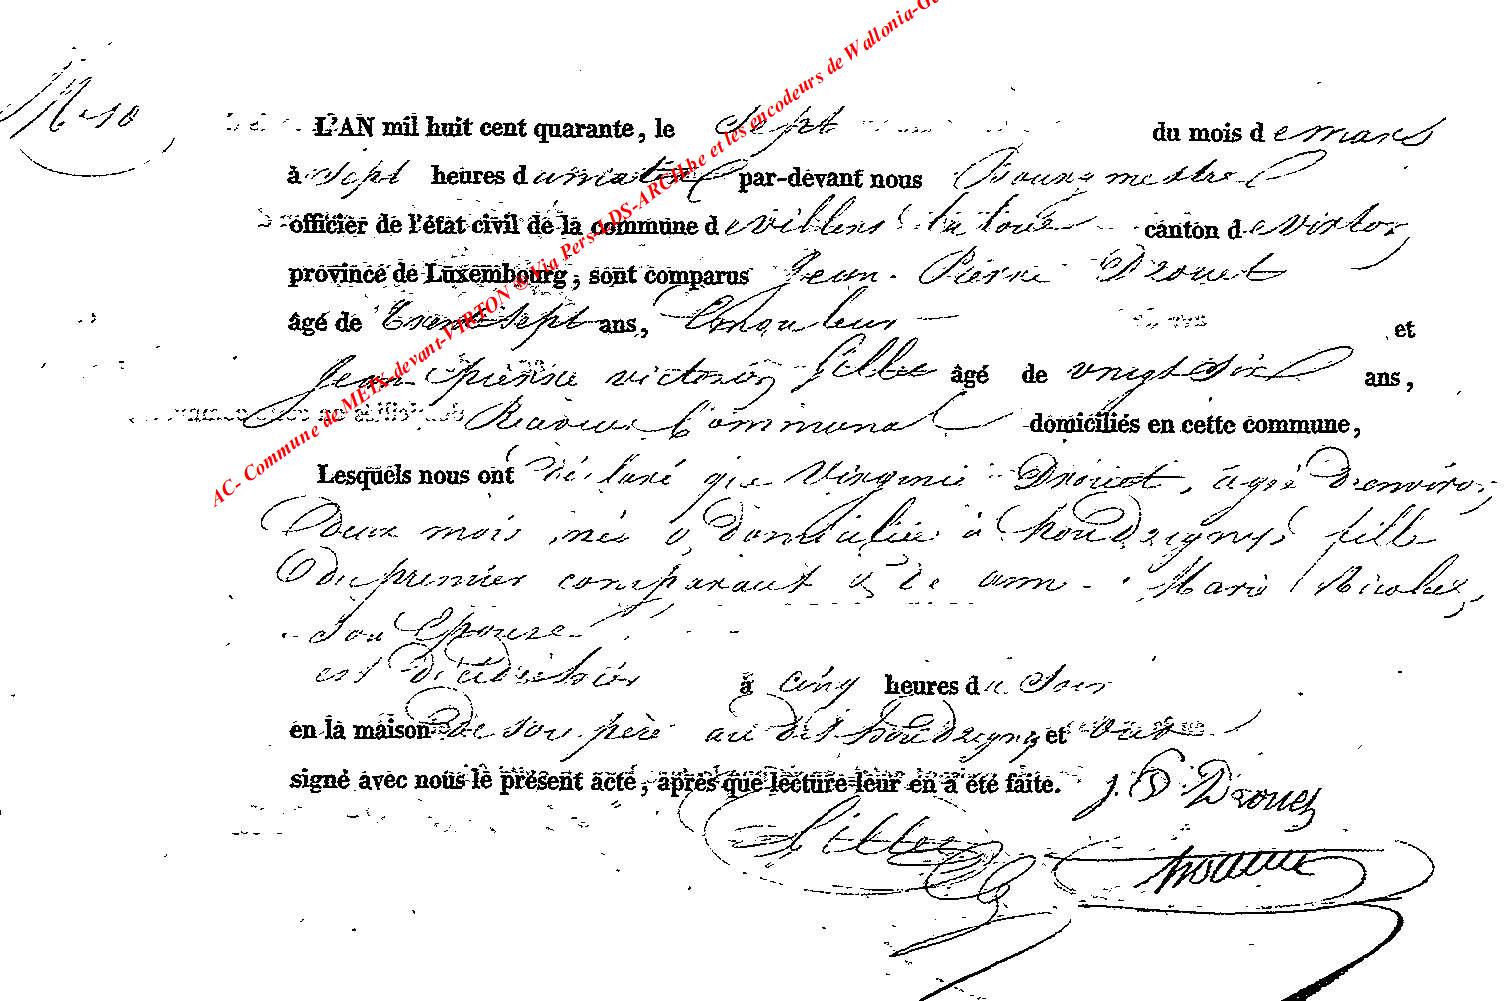 N° 10
L'AN mil huit cent quarante, le Sept du mois de mars
à sept heures du matin par-devant nous Bourgmestre
officier de l'état civil de la commune de villers la loue canton de virton,
province de Luxembourg, sont comparus Jean Pierre Drouet
âgé de trente sept ans, et
Jean pierre victorin Gillet âgé de vingt six ans,
Receveur Communal domiciliés en cette commune,
Lesquels nous ont déclaré que Virginie Drouet, agée d'environ
Deux mois née & domiciliée à houdrigny, fille
Du premier comparant & de ann Marie Nicolas,
Son Epouse
est décédée hier à cinq heures du Soir
en la maison de son père au dit houdrigny et ont
signé avec nous le présent acte, après que lecture leur en a été faite. J. P. Drouet
Gillet
AC- Commune de MEIX-devant-VIRTON ® Via Pers-LDS-ARCH.be et les encodeurs de Wallonia-G